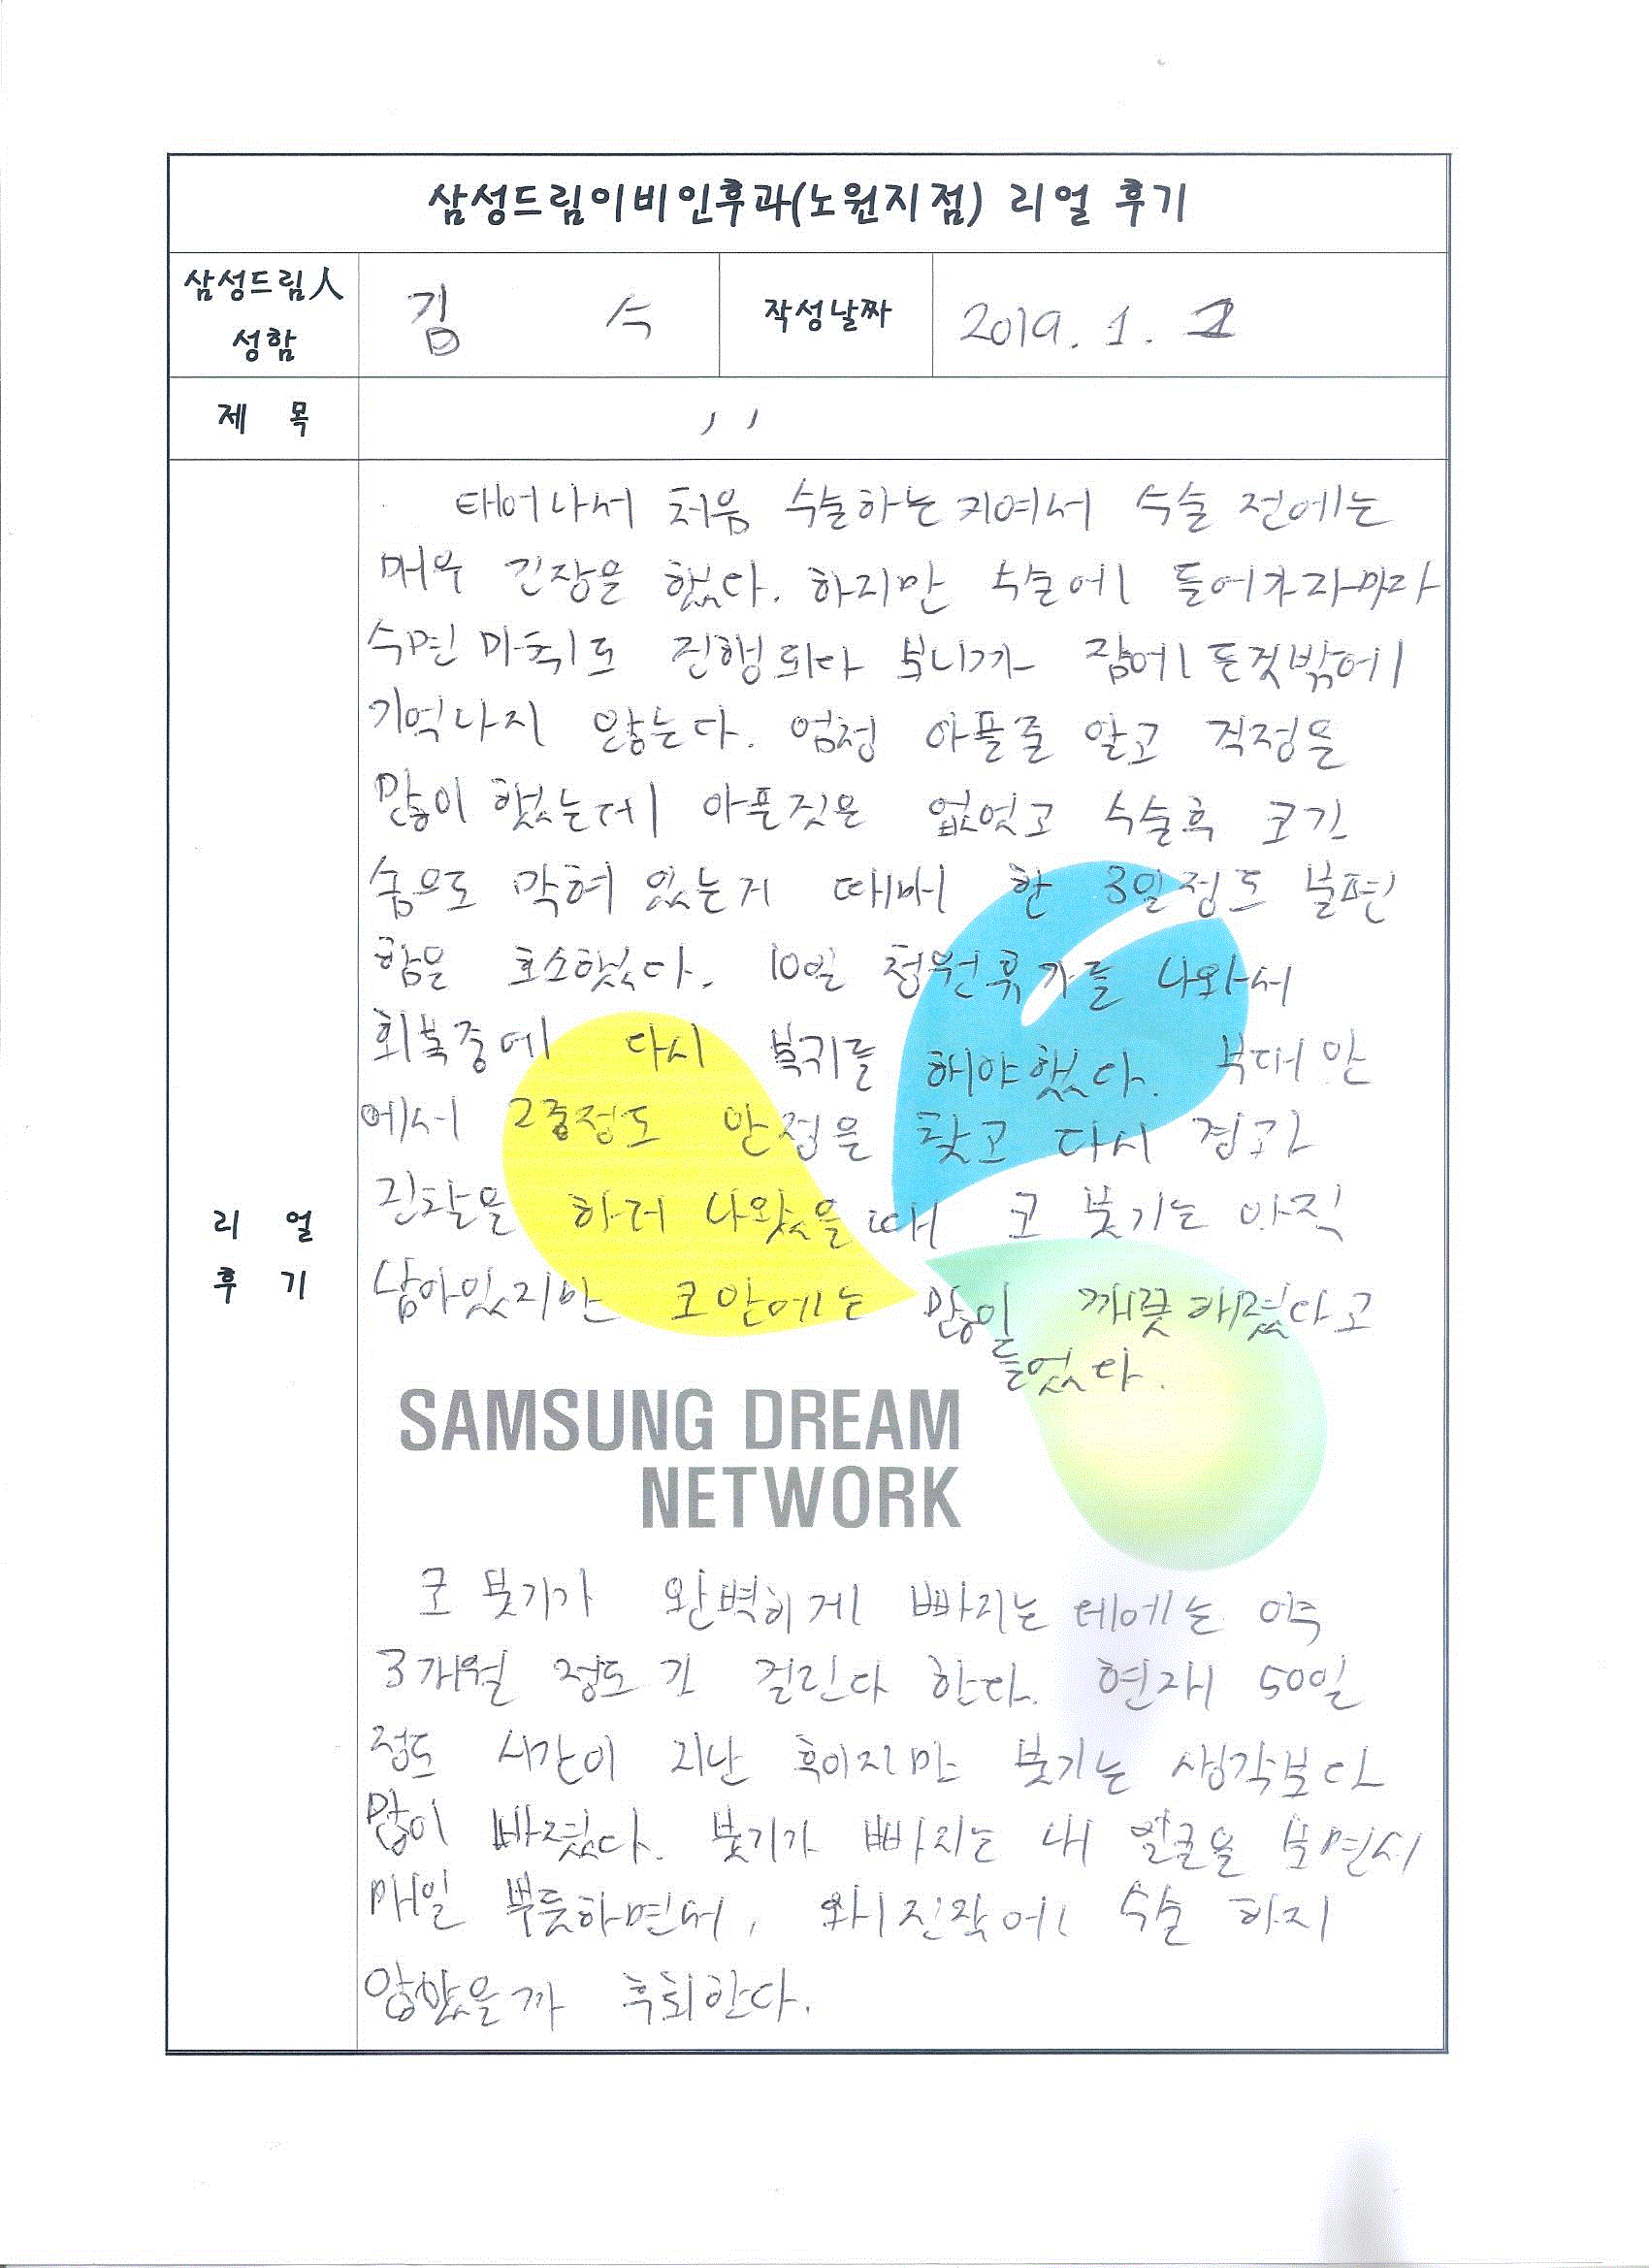 삼성드림이비인후과(노원지점) 리얼 후기
삼성드림人
성함
김 수
작성날짜
2019. 1. 2
제 목
,,
태어나서 처음 수술하는거여서 수술 전에는
매우 긴장을 했다. 하지만 수술에 들어가자마자
수면 마취도 진행되다 보니까 잠에 든것밖에
기억나지 않는다. 엄청 아플줄 알고 걱정을
많이 했었는데 아픈것은 없었고 수술후 코가
솜으로 막혀 있는게 때매 한 3일정도 불편
함을 호소했었다. 10일 청원휴가를 나와서
회복중에 다시 복귀를 해야했었다. 부대 안
에서 2중정도 안정을 찾고 다시 경과
진찰을 하러 나왔을때 코 붓기는 아직
남아있지만 코안에는 많이 깨끗해졌다고
들었었다.
SAMSUNG DREAM
NETWORK
리 얼
후 기
코 붓기가 완벽히게 빠지는 데에는 약
3개월 정도가 걸린다 한다. 현재 50일
정도 시간이 지난 후이지만 붓기는 생각보다
많이 빠졌다. 붓기가 빠지는 내 얼굴을 보면서
매일 뿌듯하면서, 왜 진작에 수술 하지
않았을까 후회한다.